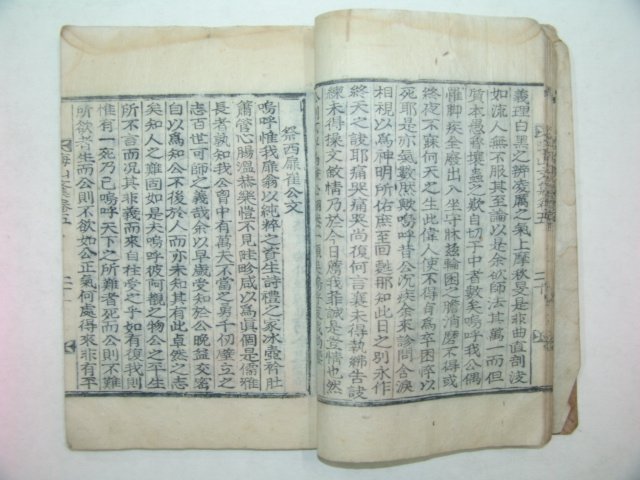 義理白黑之辨凌厲之氣上摩秋旻是非曲直剖決
如流人無不服其至論以是余似師法其萬一而但
質本愚蒙壤蟲之歎自切于中者數矣嗚呼我公偶
罹脚疾全廢出入坐守牀玆輪囷之膽消磨不得或
終夜不寐何天之生此偉人使不得身爲卒困呼以
死耶是亦氣數厭歟嗚呼昔公沈疾余來診問合淚
相視以爲神明所佑庶至回甦那知此日之別永作
終天之訣耶痛哭痛哭尙復何言襄未得執紼告訣
練未得操文敘情乃於今日膺我菲誠是豈情也然
祭西扉崔公文
嗚呼惟我扉翁以純粹之資生詩禮之家冰壺衿肚
蕭管心腸溫恭樂愷不見畦畛咸以爲眞個是儒雅
長者孰知我公胷中有萬夫不當之勇千仞壁立之
志百世可師之義哉余以早歲受知於公晩益交密
自以爲知公不後於人而亦未知其有此卓然之志
矣知人之難固如是夫嗚呼彼阿覩之物公之平生
所不言而況其非義而來自柱受之乎如有復我則
惟有一死乃已嗚呼天下之所難者死而公則不難
所欲者生而公則不欲如公正氣何處得來非有平